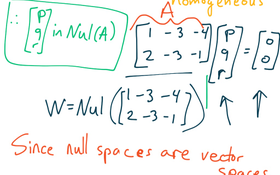 homogeneous
A
∴ [p q r] in Nul(A)
[1 -3 -4
2 -3 -1] [p q r] = [0 0]
W = Nul ([1 -3 -4
2 -3 -1])
Since null spaces are vector
spaces